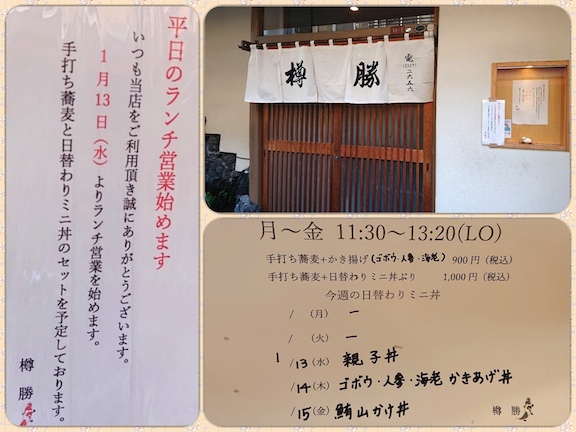 平日のランチ営業始めます
いつも当店をご利用頂き誠にありがとうございます。
1月13日（水）よりランチ営業を始めます。
手打ち蕎麦と日替わりミニ丼のセットを予定しております。
樽 勝
樽 勝
月〜金 11:30〜13:20(LO)
手打ち蕎麦+かき揚げ(ゴボウ・人参・海老) 900円（税込）
手打ち蕎麦+日替わりミニ丼ぶり 1,000円（税込）
今週の日替わりミニ丼
/ (月) ー
/ (火) ー
1/13(水) 親子丼
/14(木) ゴボウ・人参・海老 かきあげ丼
/15(金) 鮪山かけ丼
樽 勝